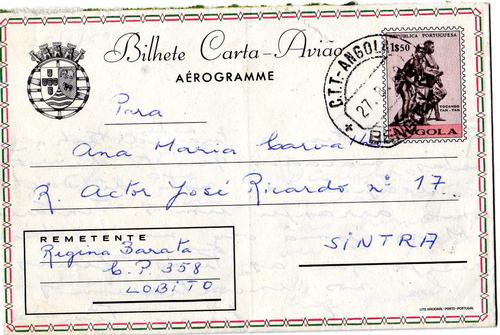 Bilhete Carta-Avião
AÉROGRAMME
REPÚBLICA PORTUGUESA
1$50
TOCANDO
TAN-TAN
ANGOLA
C.T.T-ANGOLA
27
Para
Ana Maria Carva
R. Actor José Ricardo nº 17
SINTRA
REMETENTE
Regina Barata
C.P 358
LOBITO
LITO NACIONAL-PORTO-PORTUGAL